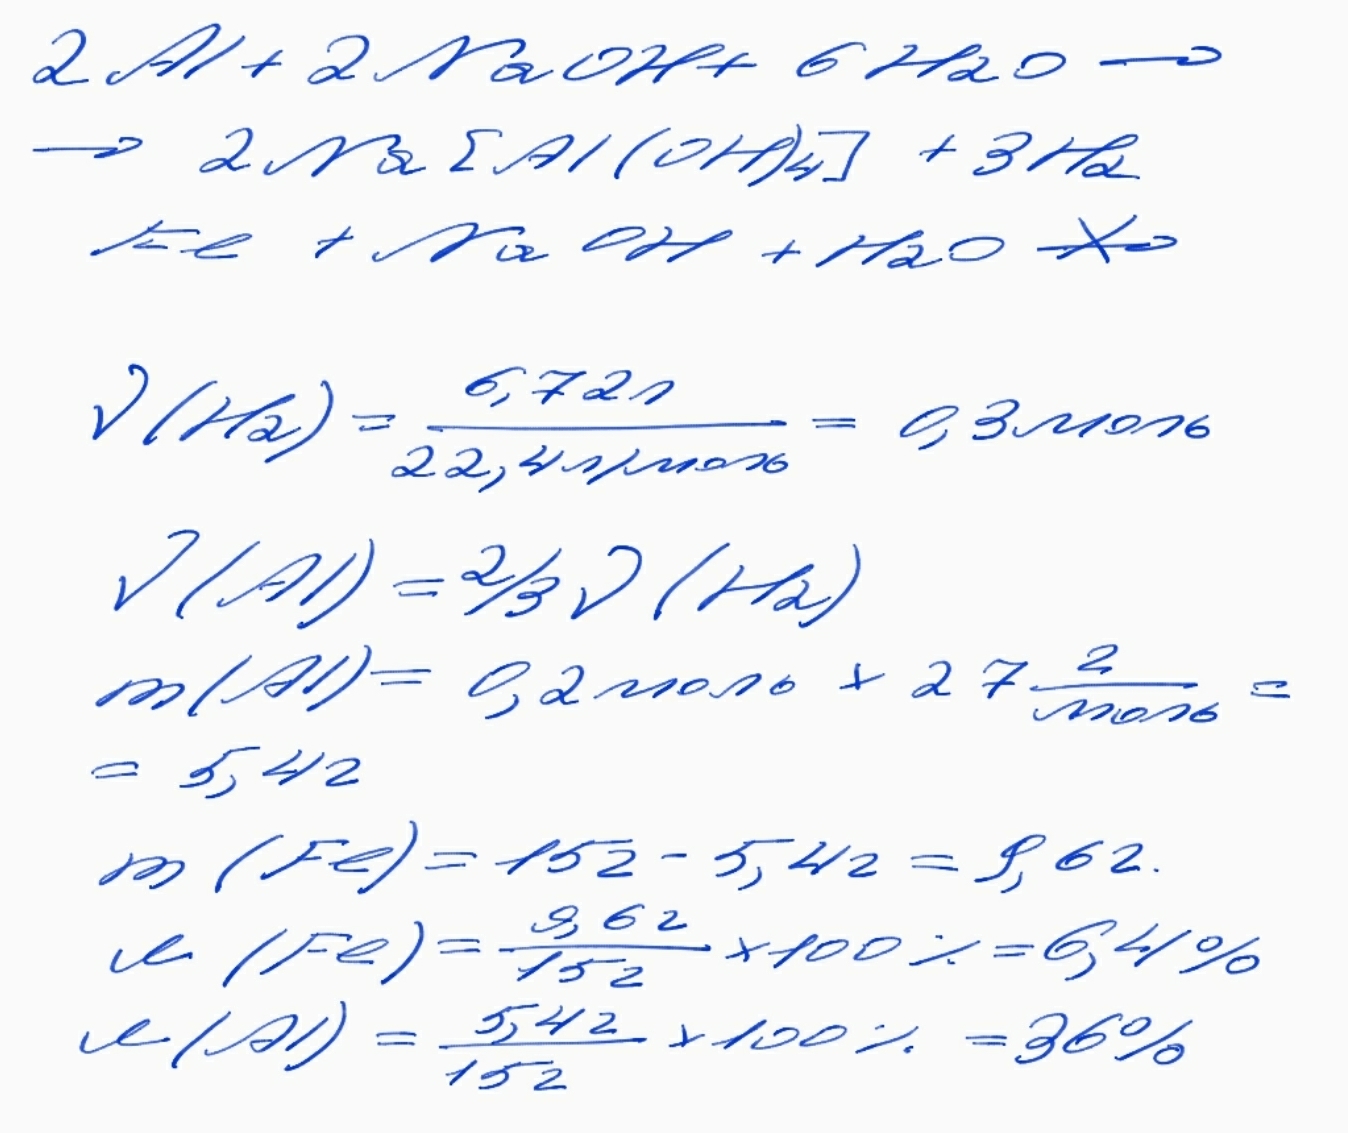 2Al + 2NaOH + 6H2O →
→ 2Na[Al(OH)4] + 3H2
Fe + NaOH + H2O ↛
ν(H2) = 6,72л / 22,4л/моль = 0,3моль
ν(Al) = 2/3 ν(H2)
m(Al) = 0,2моль × 27 г/моль =
= 5,4г
m(Fe) = 15г - 5,4г = 9,6г.
ω(Fe) = 9,6г / 15г × 100% = 6,4%
ω(Al) = 5,4г / 15г × 100% = 36%